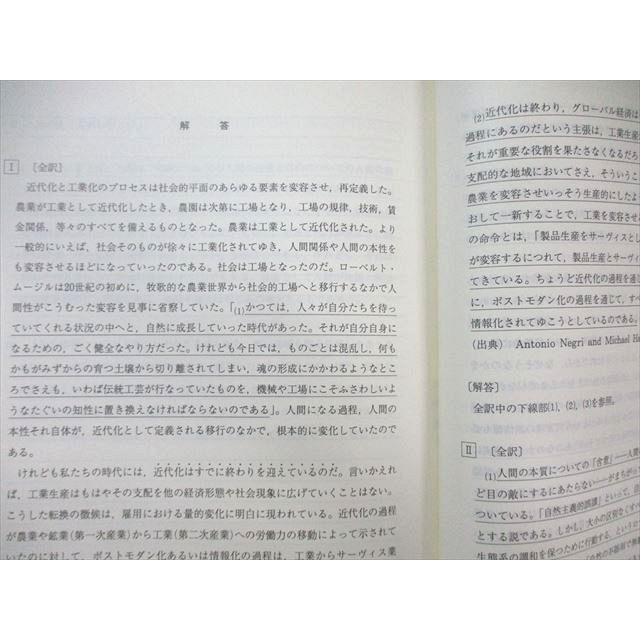 解　答
Ⅰ　〔全訳〕
近代化と工業化のプロセスは社会的平面のあらゆる要素を変容させ，再定義した。
農業が工業として近代化したとき，農園は次第に工場となり，工場の規律，技術，賃
金関係，等々のすべてを備えるものとなった。農業は工業として近代化された。より
一般的にいえば，社会そのものが徐々に工業化されてゆき，人間関係や人間の本性を
も変容させるほどになっていったのである。社会は工場となったのだ。ローベルト・
ムージルは20世紀の初めに，牧歌的な農業世界から社会的工場へと移行するなかで人
間性がこうむった変容を見事に省察していた。「(1)かつては，人々が自分たちを待っ
ていてくれる状況の中へと，自然に成長していった時代があった。それが自分自身に
なるための，ごく健全なやり方だった。けれども今日では，ものごとは混乱し，何も
かもがみずからの育つ土壌から切り離されてしまい，魂の形成にかかわるようなとこ
ろでさえも，いわば伝統工芸が行なっていたものを，機械や工場にこそふさわしいよ
うなたぐいの知性に置き換えなければならないのである」。人間になる過程，人間の
本性それ自体が，近代化として定義される移行のなかで，根本的に変化していたので
ある。
けれども私たちの時代には，近代化はすでに終わりを迎えているのだ。言いかえれ
ば，工業生産はもはやその支配を他の経済形態や社会現象に広げていくことはない。
こうした転換の徴候は，雇用における量的変化に明白に現われている。近代化の過程
が農業や鉱業(第一次産業)から工業(第二次産業)への労働力の移動によって示されて
いたのに対して，ポストモダン化あるいは情報化の過程は，工業からサーヴィス業
(2)近代化は終わり，グローバル経済は
過程にあるのだという主張は，工業生産
それが重要な役割を果たさなくなるだろ
支配的な地域においてさえ，そういうこ
農業を変容させいっそう生産的にしたよ
おして一新することで，工業を変容させ
の命令とは，「製品生産をサーヴィスとし
が変容するにつれて，製品生産とサーヴィ
てきている。ちょうど近代化の過程を通じ
に，ポストモダン化の過程を通じて，すべ
情報化されてゆこうとしているのである。
(出典)　Antonio Negri and Michael Ha
〔解答〕
全訳中の下線部(1)，(2)，(3)を参照。
Ⅱ　〔全訳〕
(1)人間の本質についての「合意」―人間
ど目の敵にするにあたらない―がまちが
ついている。「自然主義的誤謬」といって，
とする説である。しかし，大小の区別なくすべ
生態系の調和を保つために行動する，という